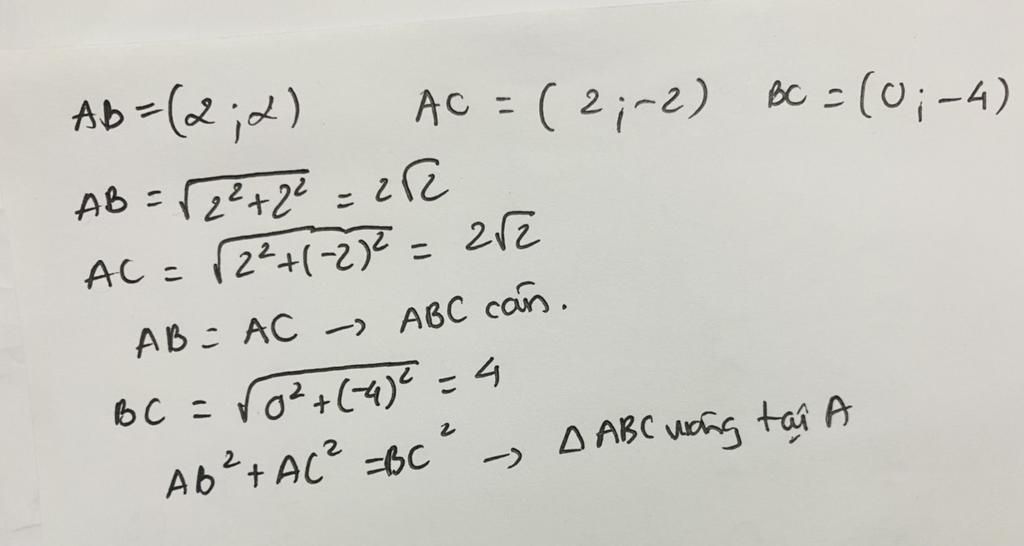 Ab = (2 ; 2) AC = ( 2 ; -2) BC = (0 ; -4)
AB = √2² + 2² = 2√2
AC = √2² + (-2)² = 2√2
AB = AC → ABC cân.
BC = √0² + (-4)² = 4
Ab² + AC² = BC² → Δ ABC vuông tại A